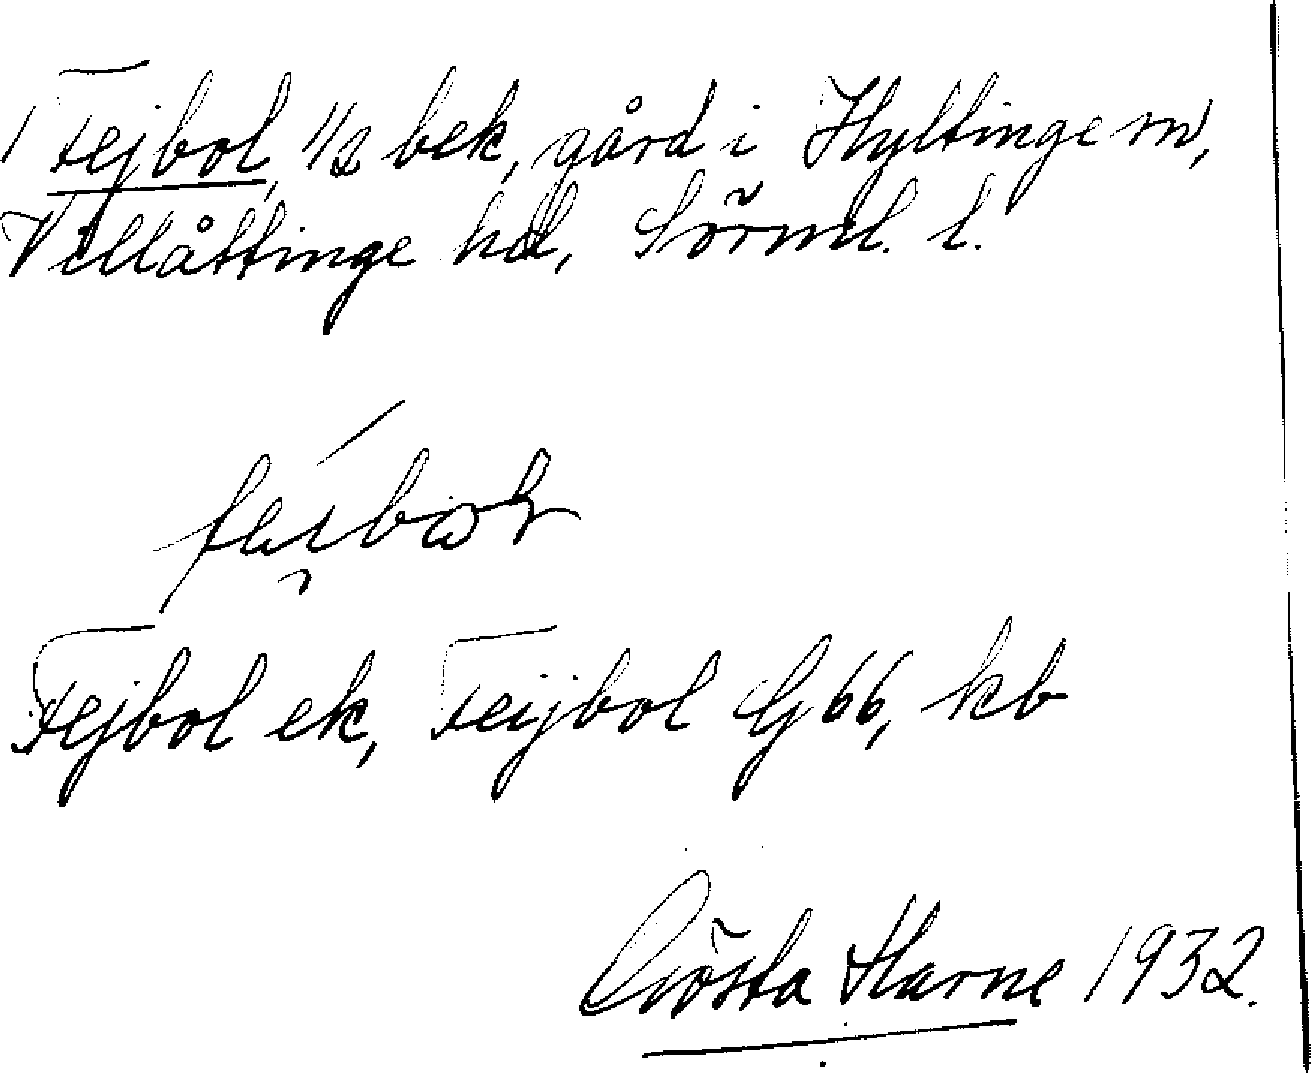 Fejbol, 1/2 bek, gård i Hyltinge sn,
Villåttinge hd, Sörml. l.
Fejbol ek, Feijbol G 66, kb
Gösta Harne 1932.